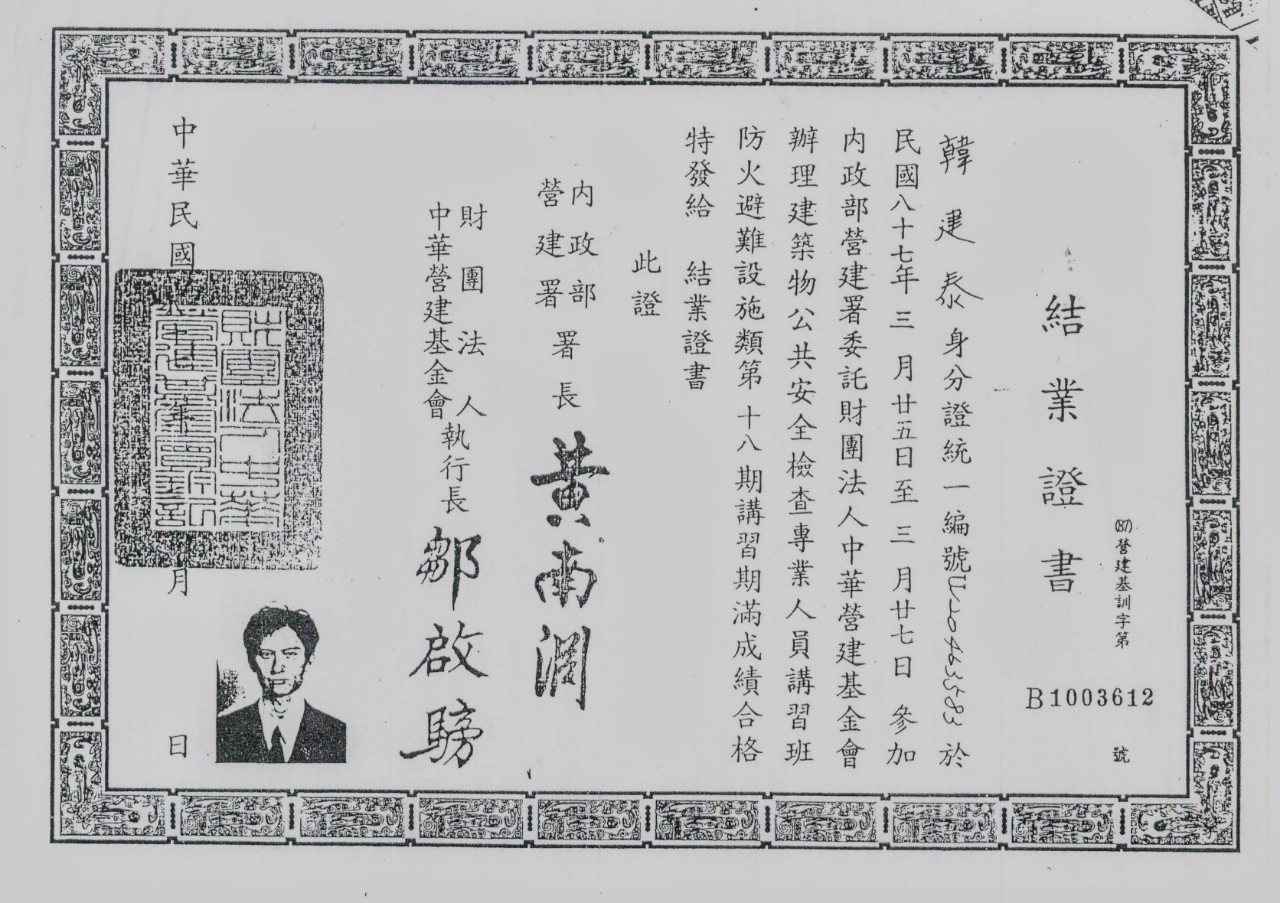 結業證書
(87)營建基訓字第
B1003612
號
韓建泰身分證統一編號U於
民國八十七年三月廿五日至三月廿七日參加
內政部營建署委託財團法人中華營建基金會
辦理建築物公共安全檢查專業人員講習班
防火避難設施類第十八期講習期滿成績合格
特發給 結業證書
此證
內政部
營建署
署長
黃南淵
財團法人
中華營建基金會
執行長
鄒啟騎
中華民國 年 月 日
財團法人中華
營建基金會